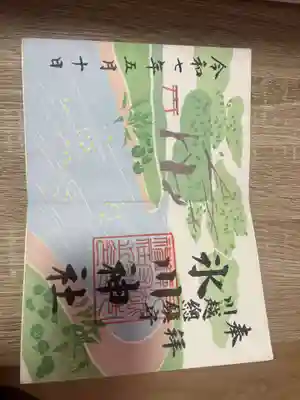 奉拝
川越總鎮守
氷川神社
令和七年五月十日